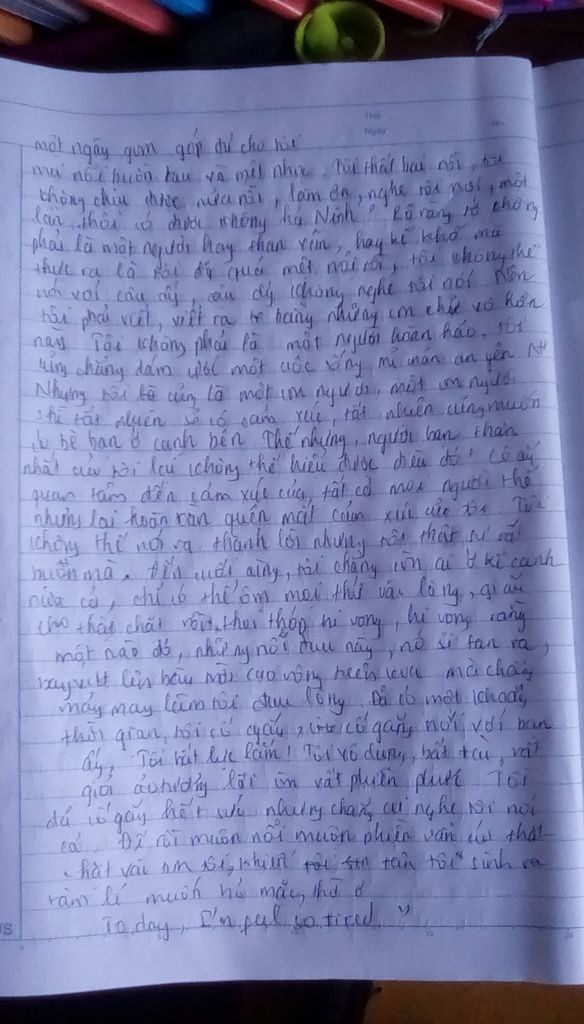 Thứ
Ngày
một ngày gom góp đủ cho tôi
mọi nỗi buồn rầu và mệt nhọc. Tôi thất bại rồi, tôi
không chịu được nữa rồi, làm ơn, nghe tôi nói, một
lần thôi có được không hả Ninh? Rõ ràng tớ không
phải là một người hay than vãn, hay kể khổ mà
thực ra là tôi đã quá mệt mỏi rồi, tôi không thể
nói với cậu ấy, cậu ấy không nghe tôi nói. Nên
tôi phải viết, viết ra bằng những con chữ vô hồn
này. Tôi không phải là một người hoàn hảo, tôi
cũng chẳng dám ước một cuộc sống mĩ mãn an yên
Nhưng tôi cũng là một con người, một con người
thì tất nhiên sẽ có cảm xúc, tất nhiên cũng muốn
có bè bạn ở cạnh bên. Thế nhưng, người bạn thân
nhất của tôi lại không thể hiểu được điều đó! Cô ấy
quan tâm đến cảm xúc của tất cả mọi người thế
nhưng lại hoàn toàn quên mất cảm xúc của tôi. Tôi
không thể nói ra thành lời nhưng tôi thật sự rất
buồn mà. Đến cuối cùng, tôi chẳng còn ai ở kề cạnh
nữa cả, chỉ có thể ôm mọi thứ vào lòng, giấu
cho thật chặt rồi thoi thóp hi vọng, hi vọng rằng
một nào đó, những nỗi đau này, nó sẽ tan ra,
bay lên bầu trời cao rộng mà chẳng
mảy may làm tôi đau lòng. Đã có một khoảng
thời gian, tôi cố gắng, cố gắng nói với bạn
ấy, Tôi bất lực lắm! Tôi vô dụng, bất tài,
Tôi
đã cố gắng hết sức nhưng chẳng ai nghe tôi nói
cả. Đã rồi muộn phiền vẫn
tôi, khiến tôi sinh ra
tâm lí muốn bỏ mặc, thờ ơ
Today, I'm feel so tired